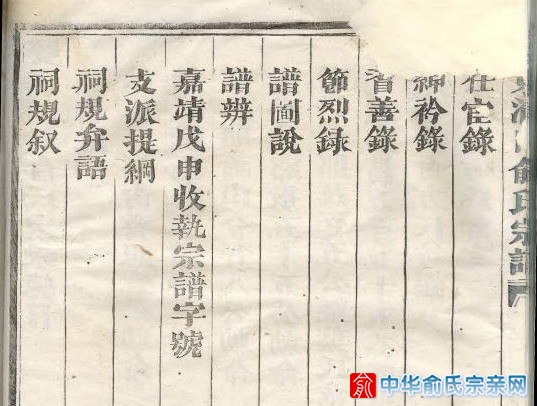 俞氏宗譜
在官錄
紳衿錄
耆善錄
節烈録
譜圖說
譜辨
嘉靖戊申收執宗譜字號
支派提綱
祠規弁語
祠規叙
俞 中华俞氏宗亲网